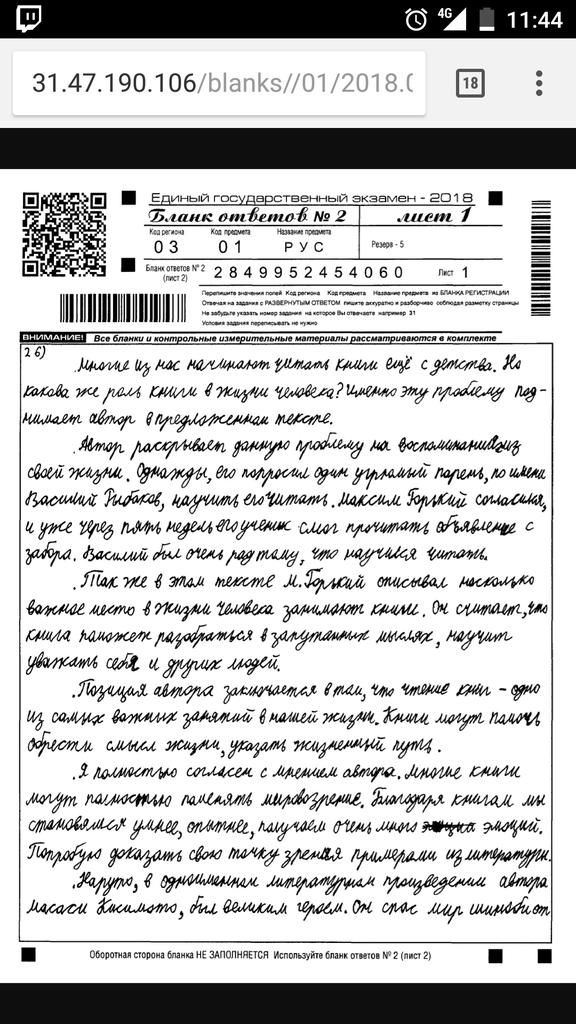 4G 11:44
31.47.190.106/blanks//01/2018.0
18
Единый государственный экзамен - 2018
Бланк ответов № 2 лист 1
Код региона Код предмета Название предмета
03 01 РУС Резерв - 5
Бланк ответов № 2 (лист 2) 2849952454060 Лист 1
Перепишите значения полей Код региона Код предмета Название предмета из БЛАНКА РЕГИСТРАЦИИ
Отвечая на задания с РАЗВЕРНУТЫМ ОТВЕТОМ пишите аккуратно и разборчиво соблюдая разметку страницы
Не забудьте указать номер задания на которое Вы отвечаете например 31
Условия задания переписывать не нужно
ВНИМАНИЕ! Все бланки и контрольные измерительные материалы рассматриваются в комплекте
26)
Многие из нас начинают читать книги ещё с детства. Но
какова же роль книги в жизни человека? Именно эту проблему под-
нимает автор в предложенном тексте.
Автор раскрывает данную проблему на воспоминаниях из
своей жизни. Однажды, его попросил один угрюмый парень, по имени
Василий Рыбаков, научить его читать. Максим Горький согласился,
и уже через пять недель его ученик смог прочитать объявление с
забора. Василий был очень рад тому, что научился читать.
Так же в этом тексте М. Горький описывал насколько
важное место в жизни человека занимают книги. Он считает, что
книга поможет разобраться в запутанных мыслях, научит
уважать себя и других людей.
Позиция автора заключается в том, что чтение книг - одно
из самых важных занятий в нашей жизни. Книги могут помочь
обрести смысл жизни, указать жизненный путь.
Я полностью согласен с мнением автора. Многие книги
могут полностью поменять мировозрение. Благодаря книгам мы
становямся умнее, опытнее, получаем очень много эмоций.
Попробую доказать свою точку зрения примерами из литературы.
Наруто, в одноименном литературном произведении автора
Масаси Кисимото, был великим героем. Он спас мир шиноби от
Оборотная сторона бланка НЕ ЗАПОЛНЯЕТСЯ Используйте бланк ответов № 2 (лист 2)